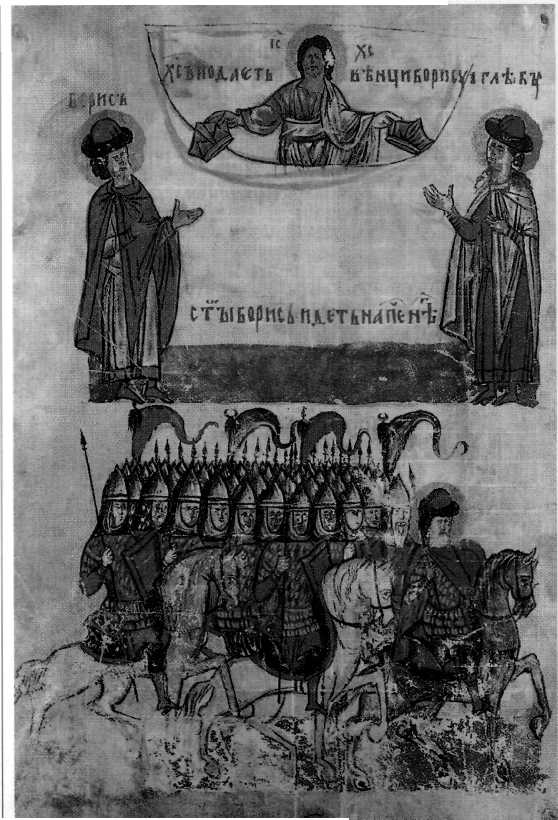 ІС ХС
ХСЪ ПОДАЄТЬ ВѢНЦИ БОРИСУ И ГЛѢБУ
БОРИСЪ
СТЪІ БОРИСЬ ИДЕТЬ НА